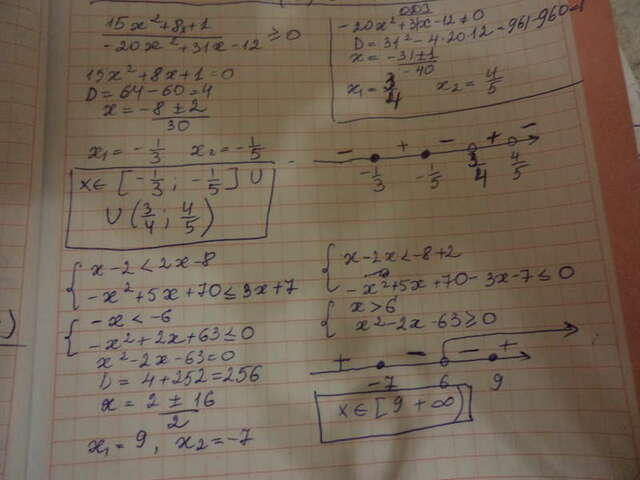 15x²+8x+1 / -20x²+31x-12 ≥ 0
15x²+8x+1=0
D=64-60=4
x = -8±2 / 30
x₁=-1/3 x₂=-1/5
x∈[-1/3; -1/5] ∪
∪(3/4; 4/5)
ОДЗ
-20x²+31x-12≠0
D=31²-4·20·12=961-960=1
x= -31±1 / -40
x₁=3/4 x₂=4/5
- + - + -
-1/3 -1/5 3/4 4/5
{ x-2<2x-8
-x²+5x+70≤3x+7
{ -x<-6
-x²+2x+63≤0
x²-2x-63=0
D=4+252=256
x= 2±16 / 2
x₁=9, x₂=-7
{ x-2x<-8+2
-x²+5x+70-3x-7≤0
{ x>6
x²-2x-63≥0
+ - - +
-7 6 9
x∈[9 +∞)